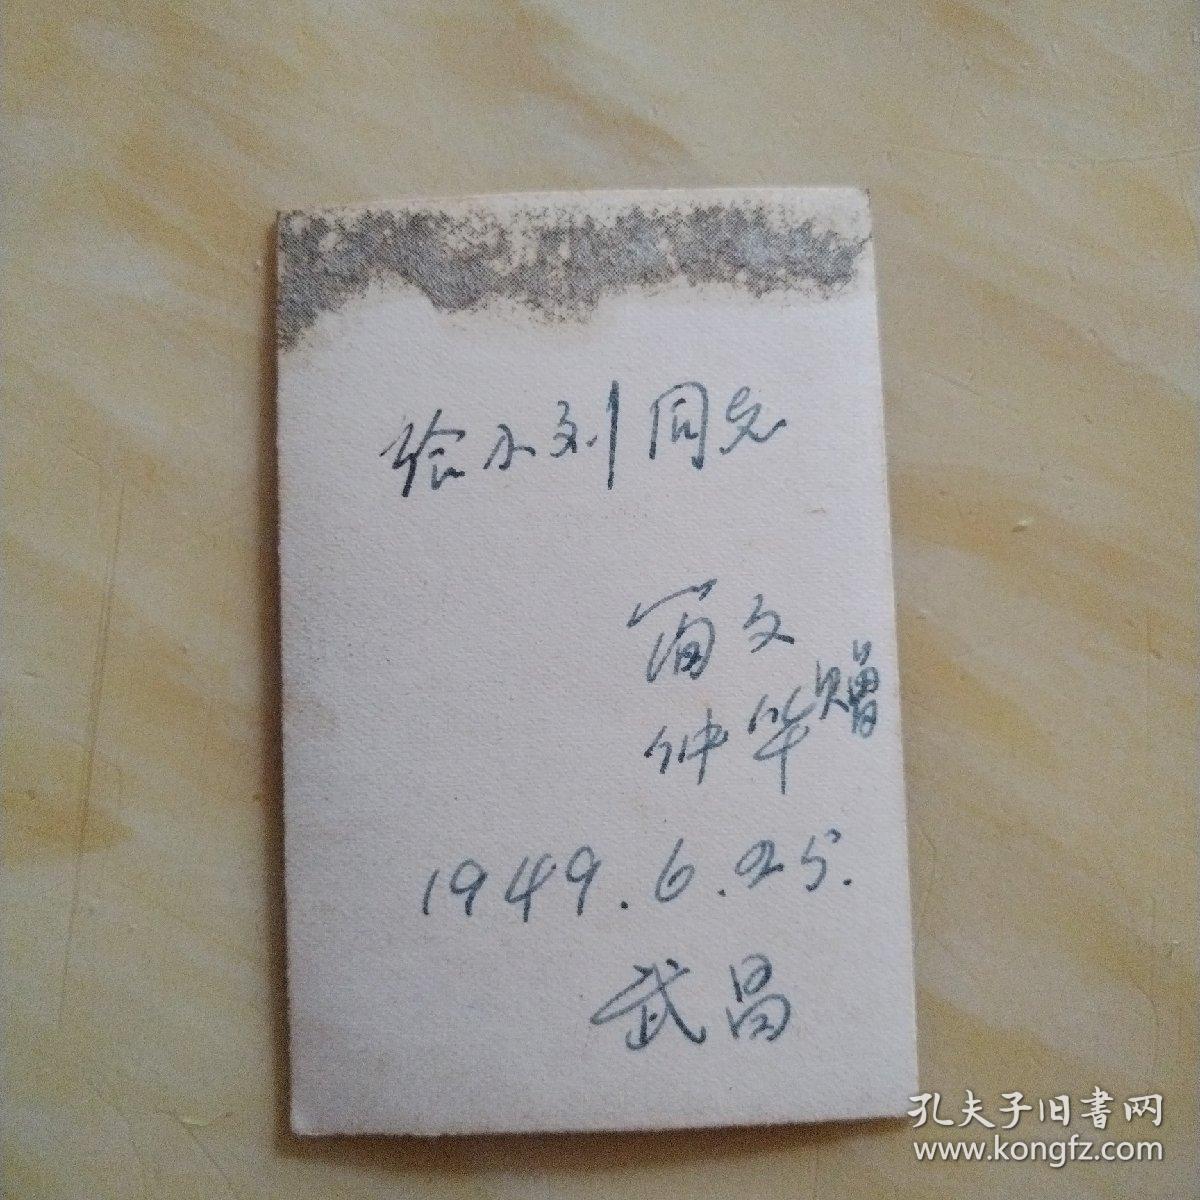 给小刘同志
文
仲华赠
1949.6.25.
武昌
孔夫子旧書网
www.kongfz.com